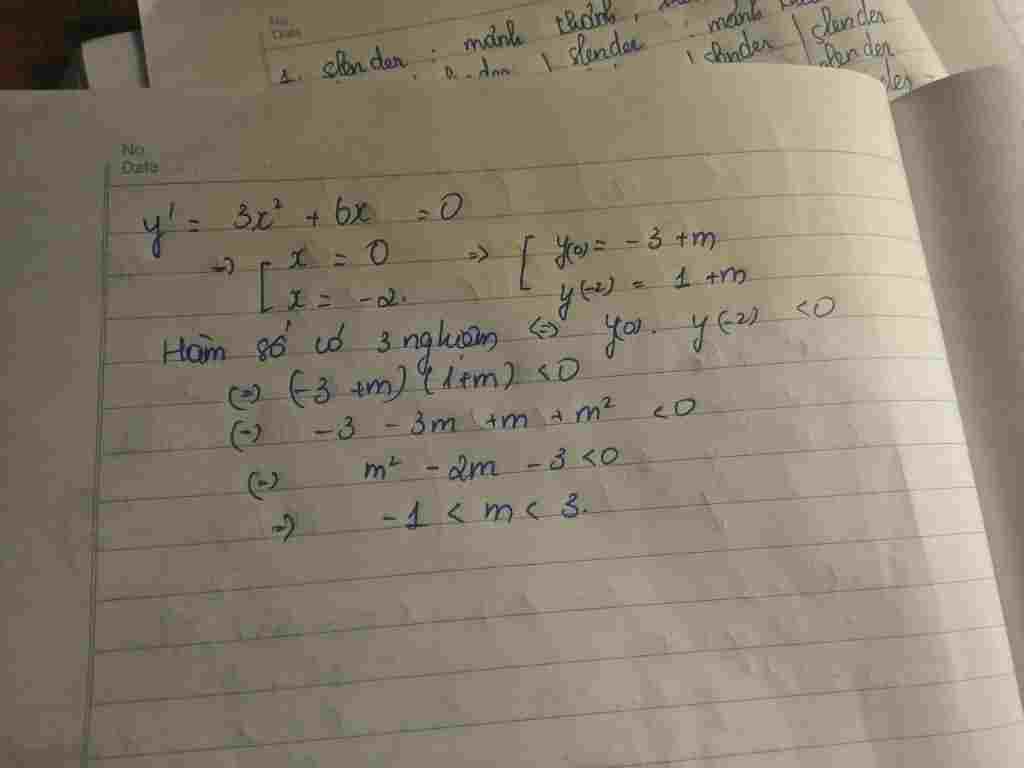 No
Date
1. slender : mảnh
slender : mảnh
slender
slender
slender
No
Date
y' = 3x² + 6x = 0
=> [ x = 0 => [ y(0) = -3 + m
x = -2. y(-2) = 1 + m
Hàm số có 3 nghiệm <=> y(0). y(-2) < 0
(=) (-3 + m) (1+m) < 0
(=) -3 - 3m + m + m² < 0
(=) m² - 2m - 3 < 0
=> -1 < m < 3.